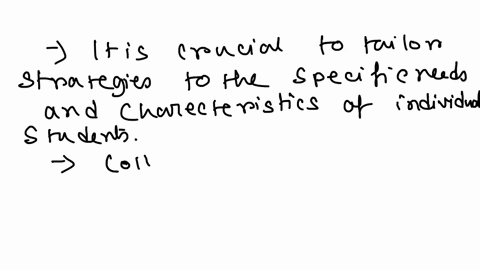 → It is crucial to tailor
strategies to the specific needs
and charecteristics of individual
students.
→ Coll